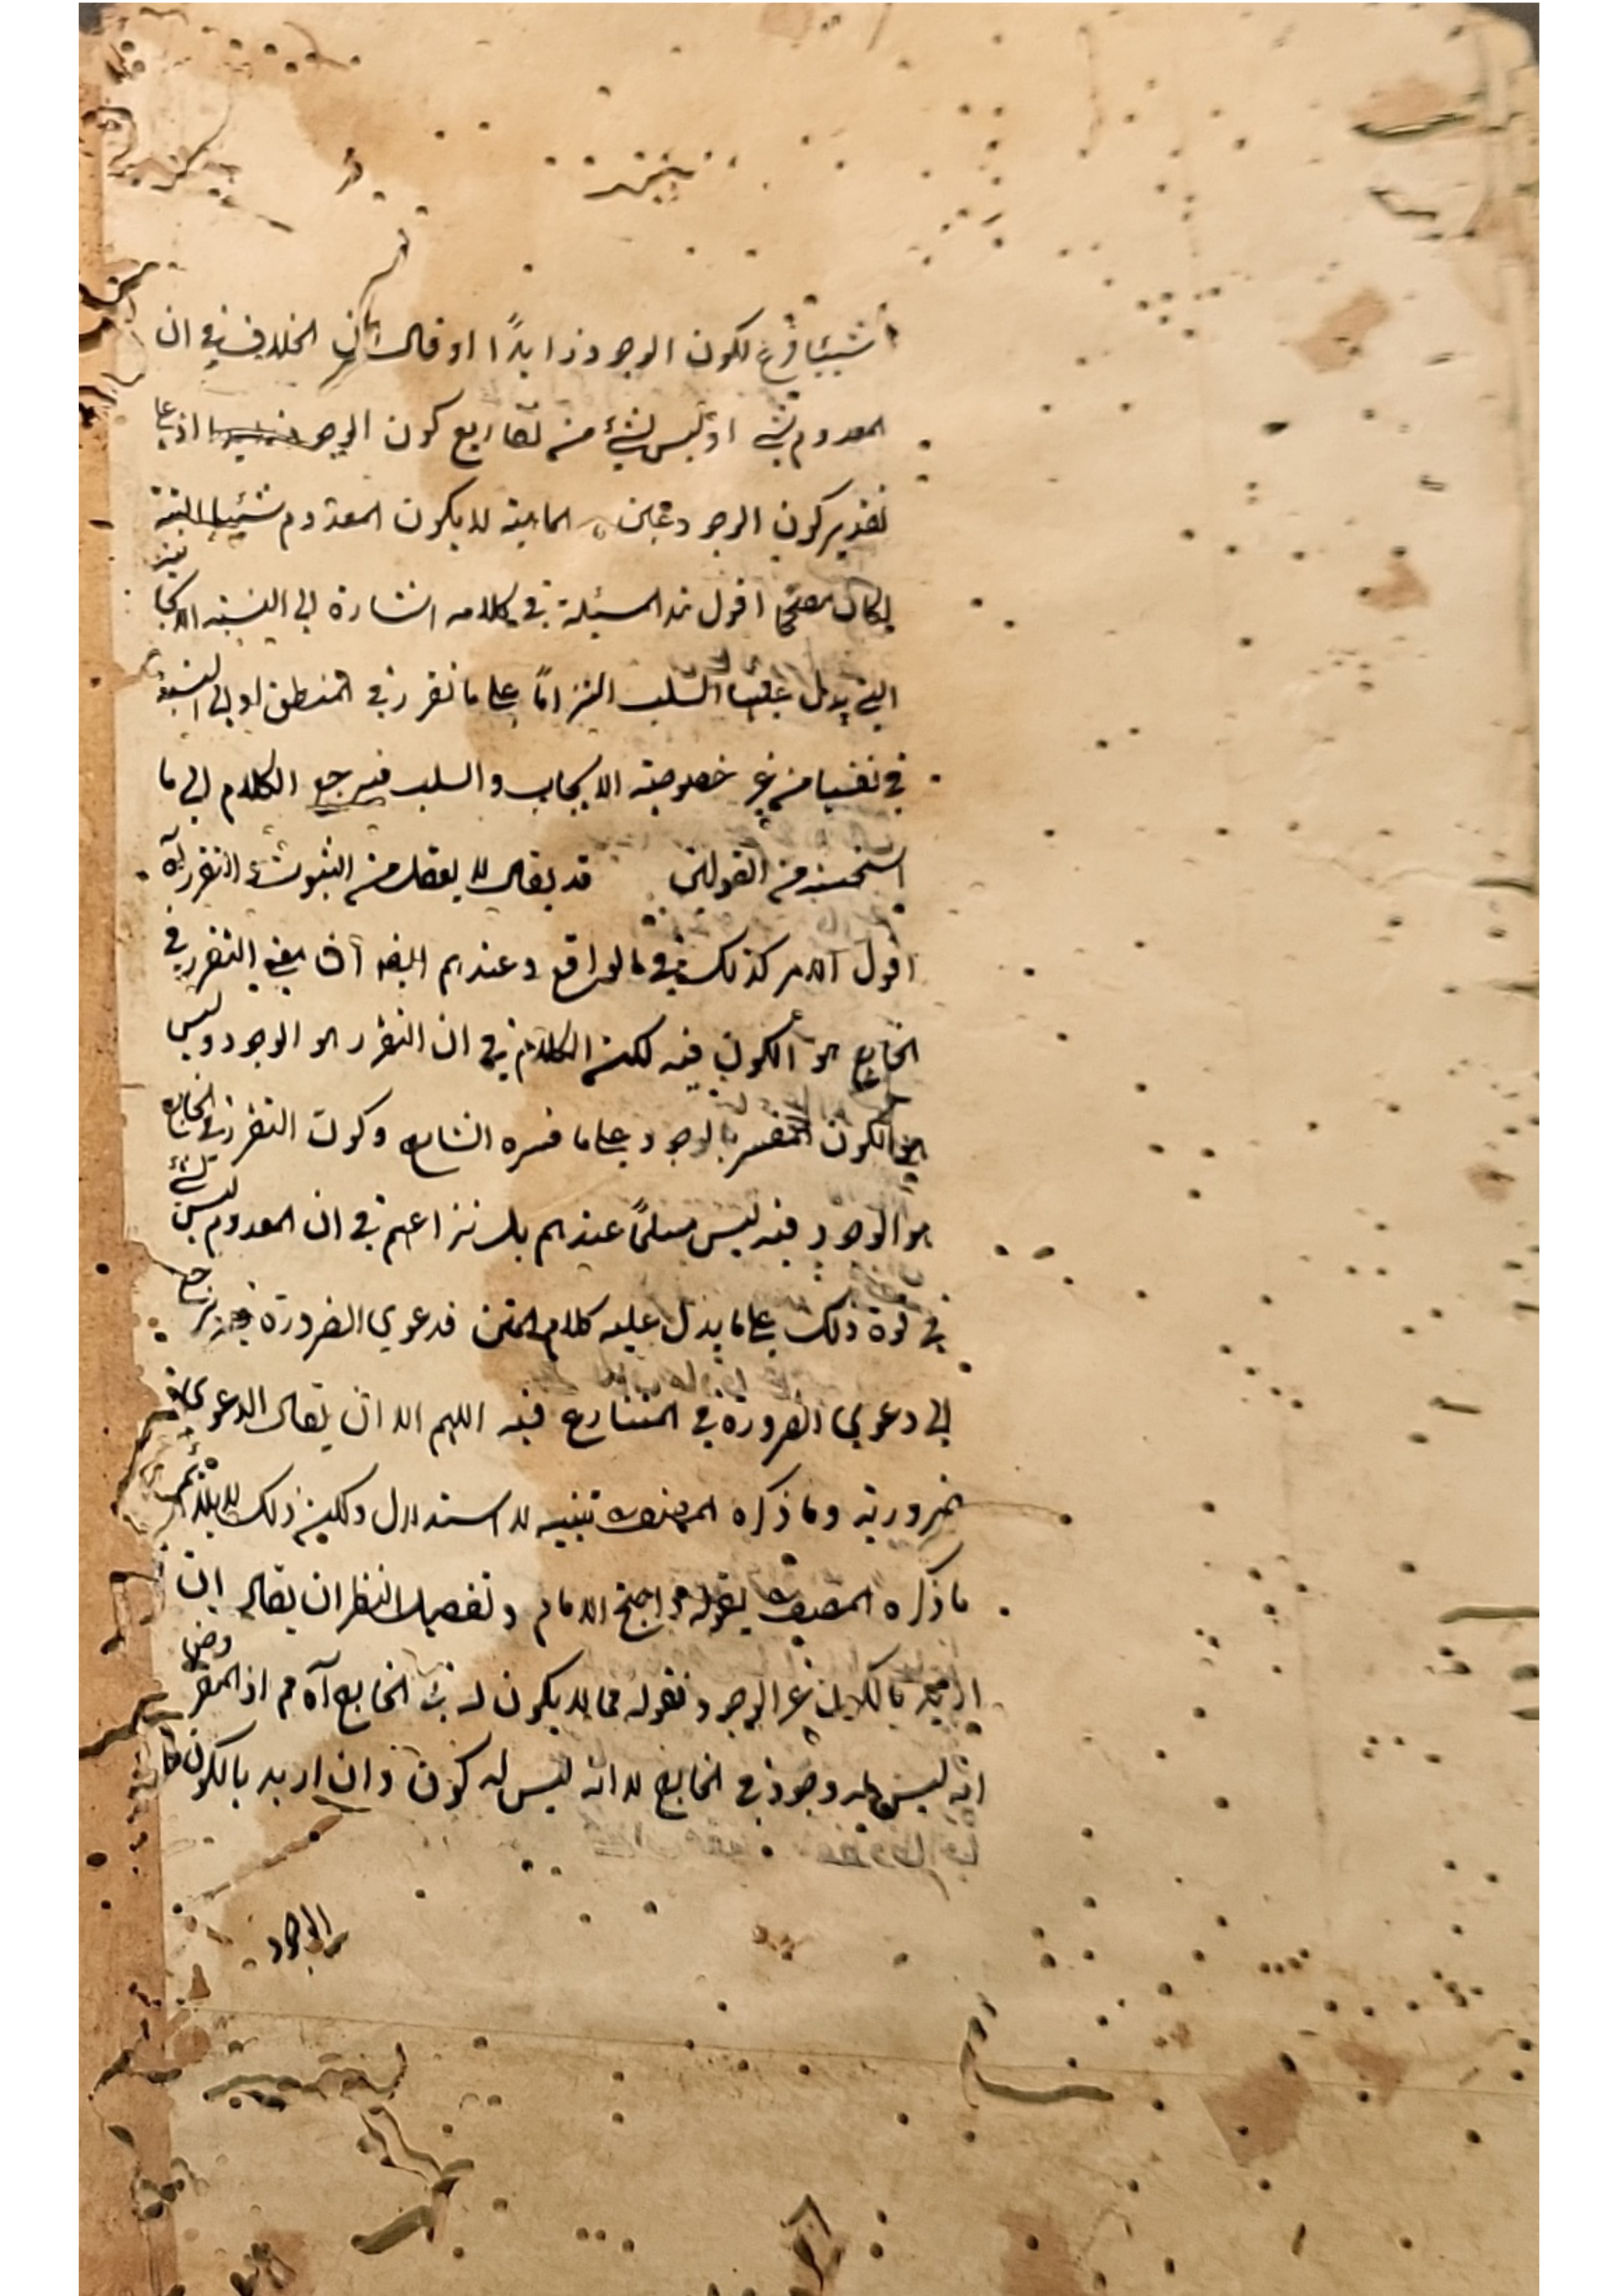 شيئا فرع لكون الوجود زايدًا او قال الخلاف في ان
المعدوم شئ او ليس بشئ من تفاريع كون الوجود اذ على
تقدير كون الوجود عين الماهية لا يكون المعدوم شيئا البتة
لكان اقول هذه المسئلة في كلامه اشارة الى النسبة الايجابية
التي يدل عليها السلب التزامًا على ما تقرر في المنطق او الى النسبة
في نفسها من غير خصوصية الايجاب والسلب فيرجع الكلام الى ما
استحسنه من القولين قد يقال لا يعقل من الثبوت التقرر آه
اقول الامر كذلك في الواقع وعندهم ايضا ان معنى التقرر في
الخارج هو الكون فيه لكن الكلام في ان التقرر هو الوجود وليس
هو الكون المفسر بالوجود على ما فسره الشارح وكون التقرر في الخارج
هو الوجود فيه ليس مسلمًا عندهم بل نزاعهم في ان المعدوم ليس بشئ
في قوة ذلك على ما يدل عليه كلام المتن فدعوى الضرورة يرجع
الى دعوى الضرورة في المتنازع فيه اللهم الا ان يقال الدعوى
ضرورية وما ذكره المصنف تنبيه لا استدلال ولكن ذلك لا يلائم
ما ذكره المصنف بقوله واحتج الامام وتفصيل النظر ان يقال ان
اريد بالكون غير الوجود فقوله فما لا يكون له في الخارج آه م اذ المفروض
انه ليس له وجود في الخارج لا انه ليس له كون وان اريد بالكون
الوجود